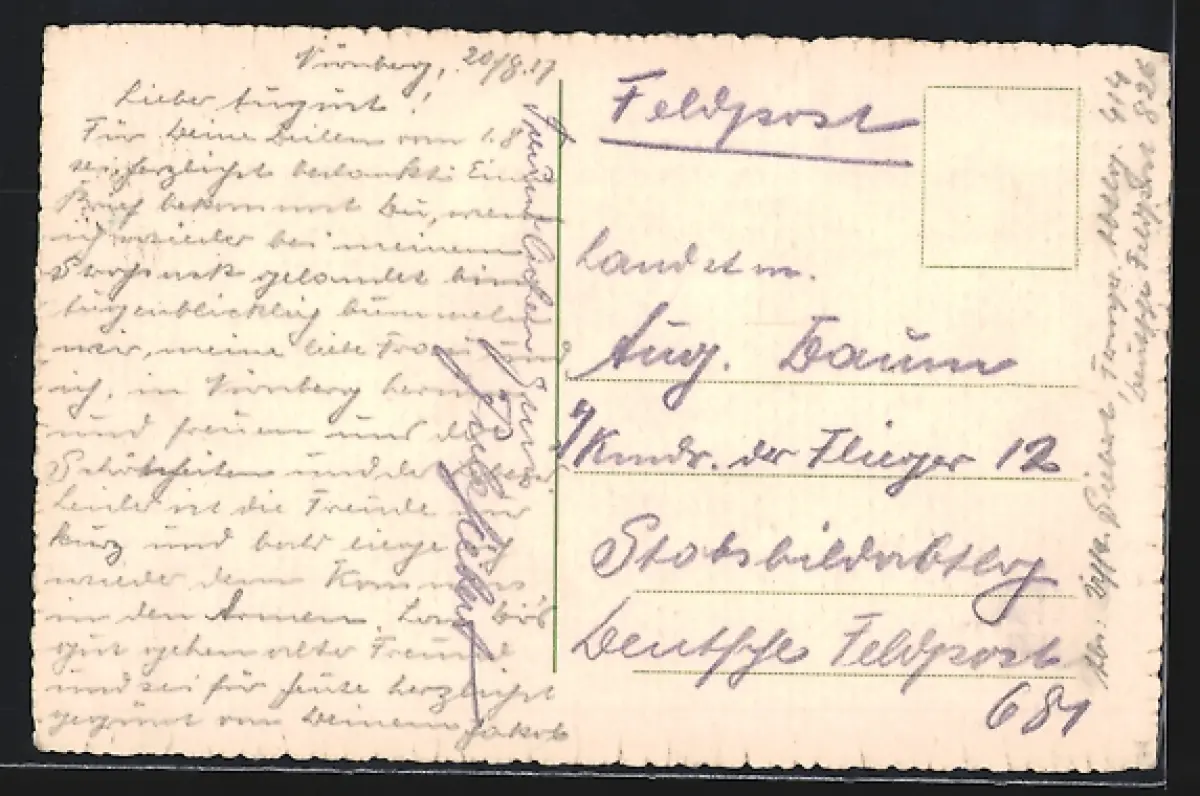 Nürnberg, 20/8.17
Lieber August!
Für Deine Zeilen vom 1.8
sei herzlichst bedankt. Einen
Brief bekommst Du, wenn
ich wieder bei meinem
gelandet bin
Augenblicklich bummeln
wir, meine liebe Frau und
ich, in Nürnberg herum
und freuen uns der
Schönheiten und der
Leider ist die Freude nur
kurz und bald liege ich
wieder dem Kommiss
in den Armen. Lass Dir's
gut gehen alter Freund
und sei für heute herzlichst
gegrüsst von Deinem Jakob
Feldpost
Landstm.
Aug. Daum
Kmdr. der Flieger 12
Stabsbildabtlg
Deutsche Feldpost
681
Abs: Siebert 414
Deutsche Feldpost 826